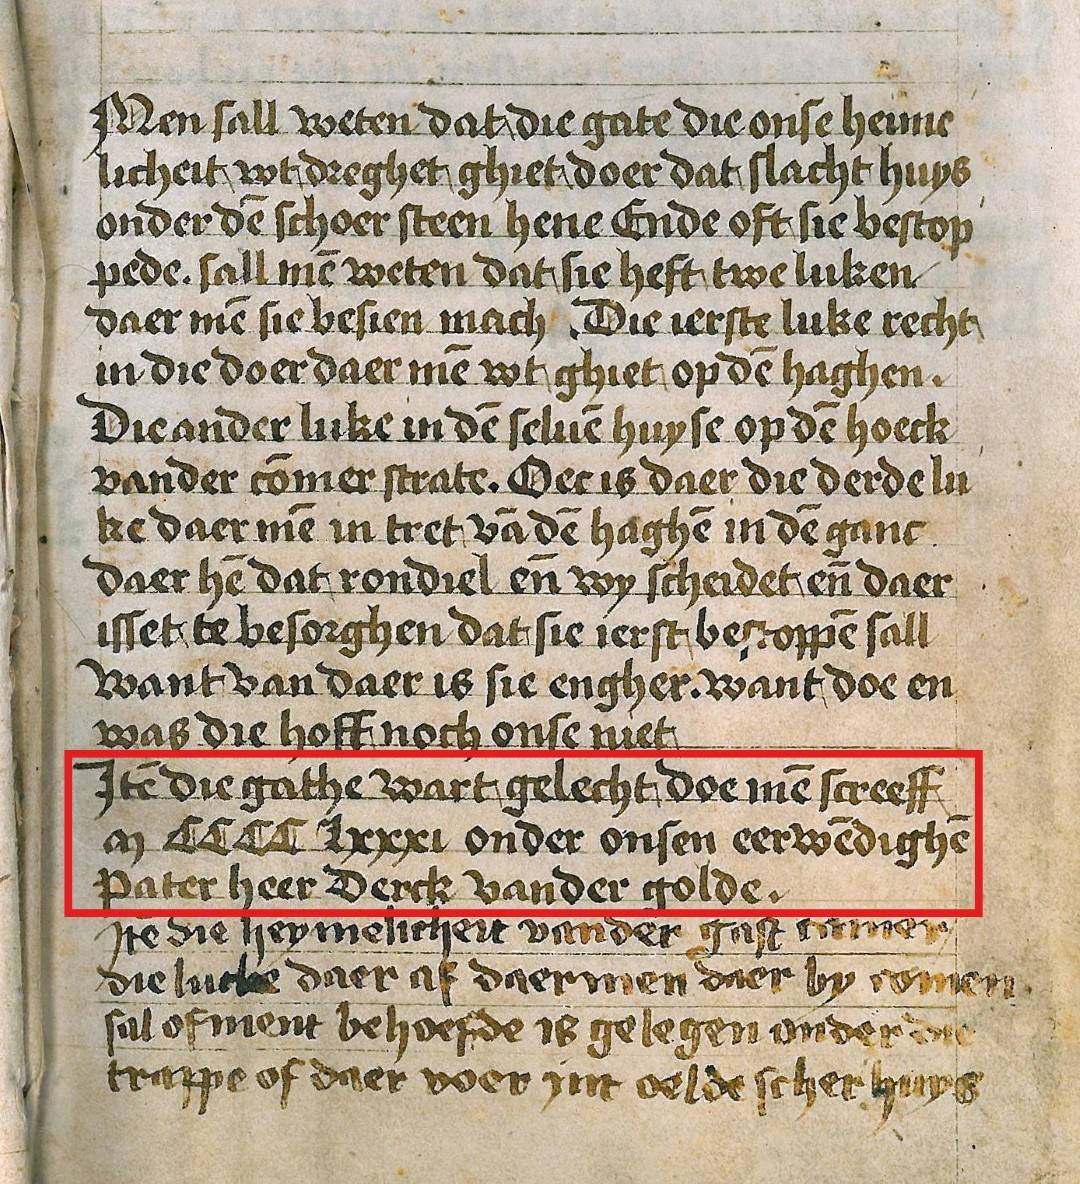 Men sall weten dat die gate die onse heime
licheit wt dreghet ghiet doer dat slacht huys
onder dē schoer steen hene Ende oft sie bestop
pede. sall mē weten dat sie heft twe luken
daer mē sie besien mach . Die ierste luke recht
in die doer daer mē wt ghiet op dē haghen .
Die ander luke in dē seluē huyse op dē hoeck
vander cōmer strate. Oec is daer die derde lu
ke daer mē in tret vā dē haghē in dē ganc
daer hē dat rondiel en̄ wy scheidet en̄ daer
isset te besorghen dat sie ierst bestoppē sall
Want van daer is sie engher. want doe en
was die hoff noch onse niet
Itē die gathe wart gelecht doe mē screeff
m CCCC lxxxi onder onsen eerwēdighē
Pater heer Derck vander golde.
Itē die heymelicheit vander gast camer
die lucke daer af daermen daer by comen
sal of ment behoefde is gelegen onder die
trappe of daer voer int oelde scher huys